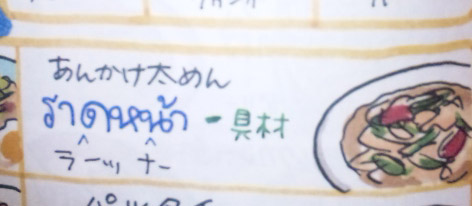 あんかけ太めん
ราดหน้า - 具材
ラーッ ナー